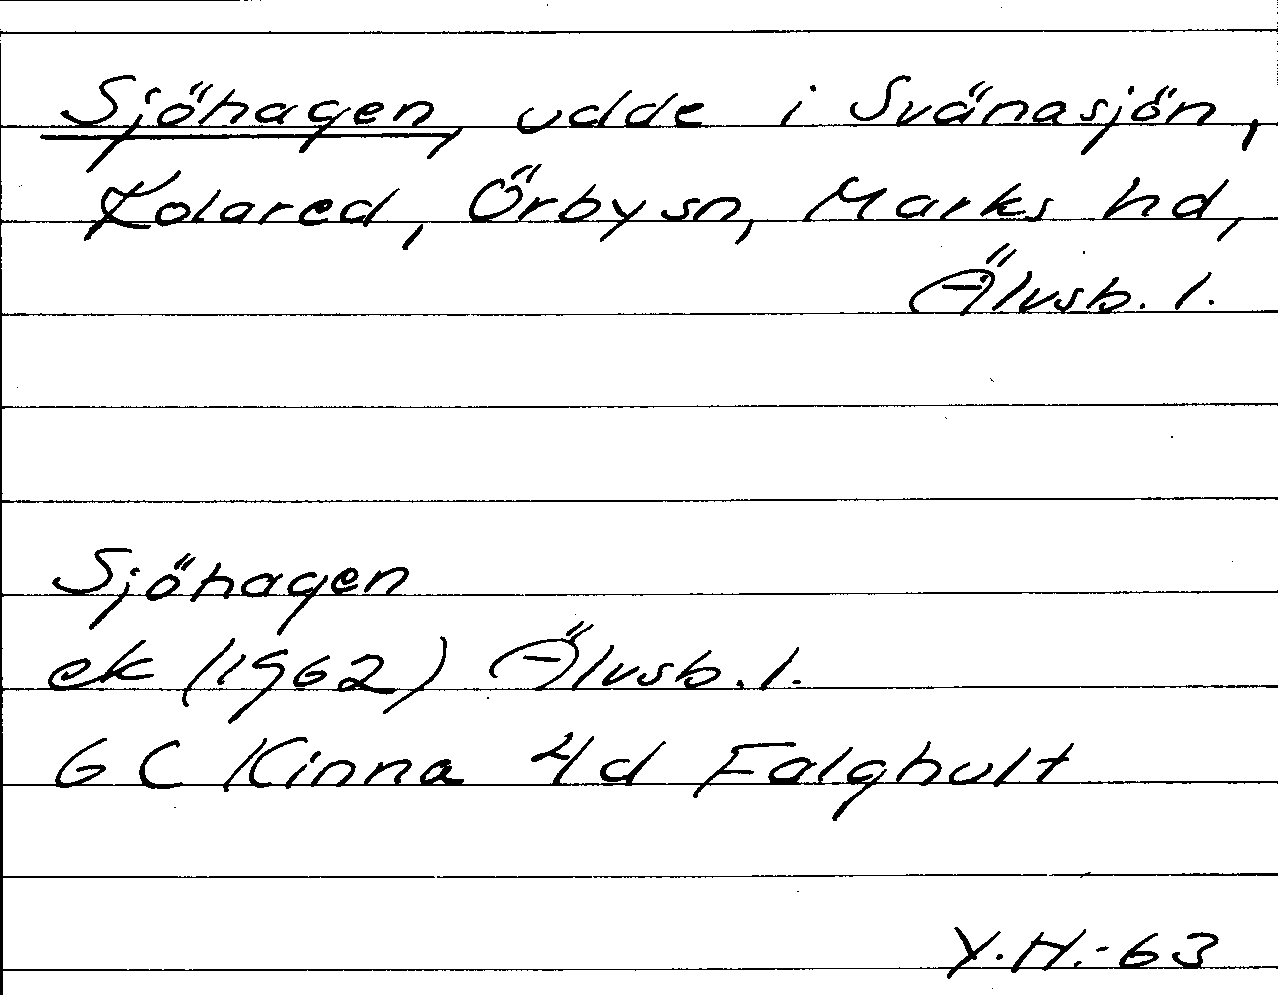 Sjöhagen, udde i Svänasjön,
Kolared, Örby sn, Marks hd,
Älvsb. l.
Sjöhagen
ek (1962) Älvsb. l.
6 C Kinna 4d Falghult
Y.H.-63